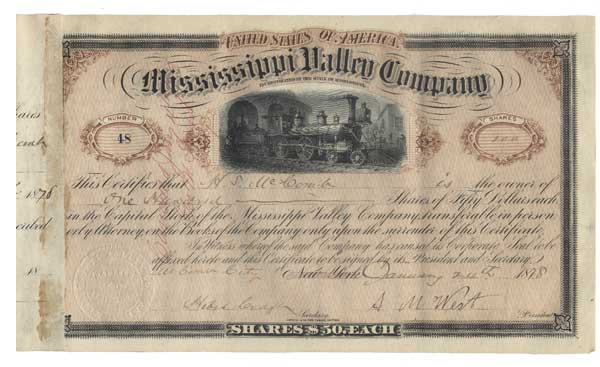 UNITED STATES OF AMERICA.
Mississippi Valley Company
INCORPORATED BY THE STATE OF MISSISSIPPI
NUMBER
48
SHARES
100
This Certifies that H S McComb is the owner of
One Hundred Shares of Fifty Dollars each
in the Capital Stock of the Mississippi Valley Company, transferable in person
or by Attorney on the Books of the Company only upon the surrender of this Certificate.
In Witness whereof the said Company has caused its Corporate Seal to be
affixed hereto and this Certificate to be signed by its President and Secretary.
McComb City New York January 1878
S M West
Secretary.
President
SHARES $50, EACH
1876
18